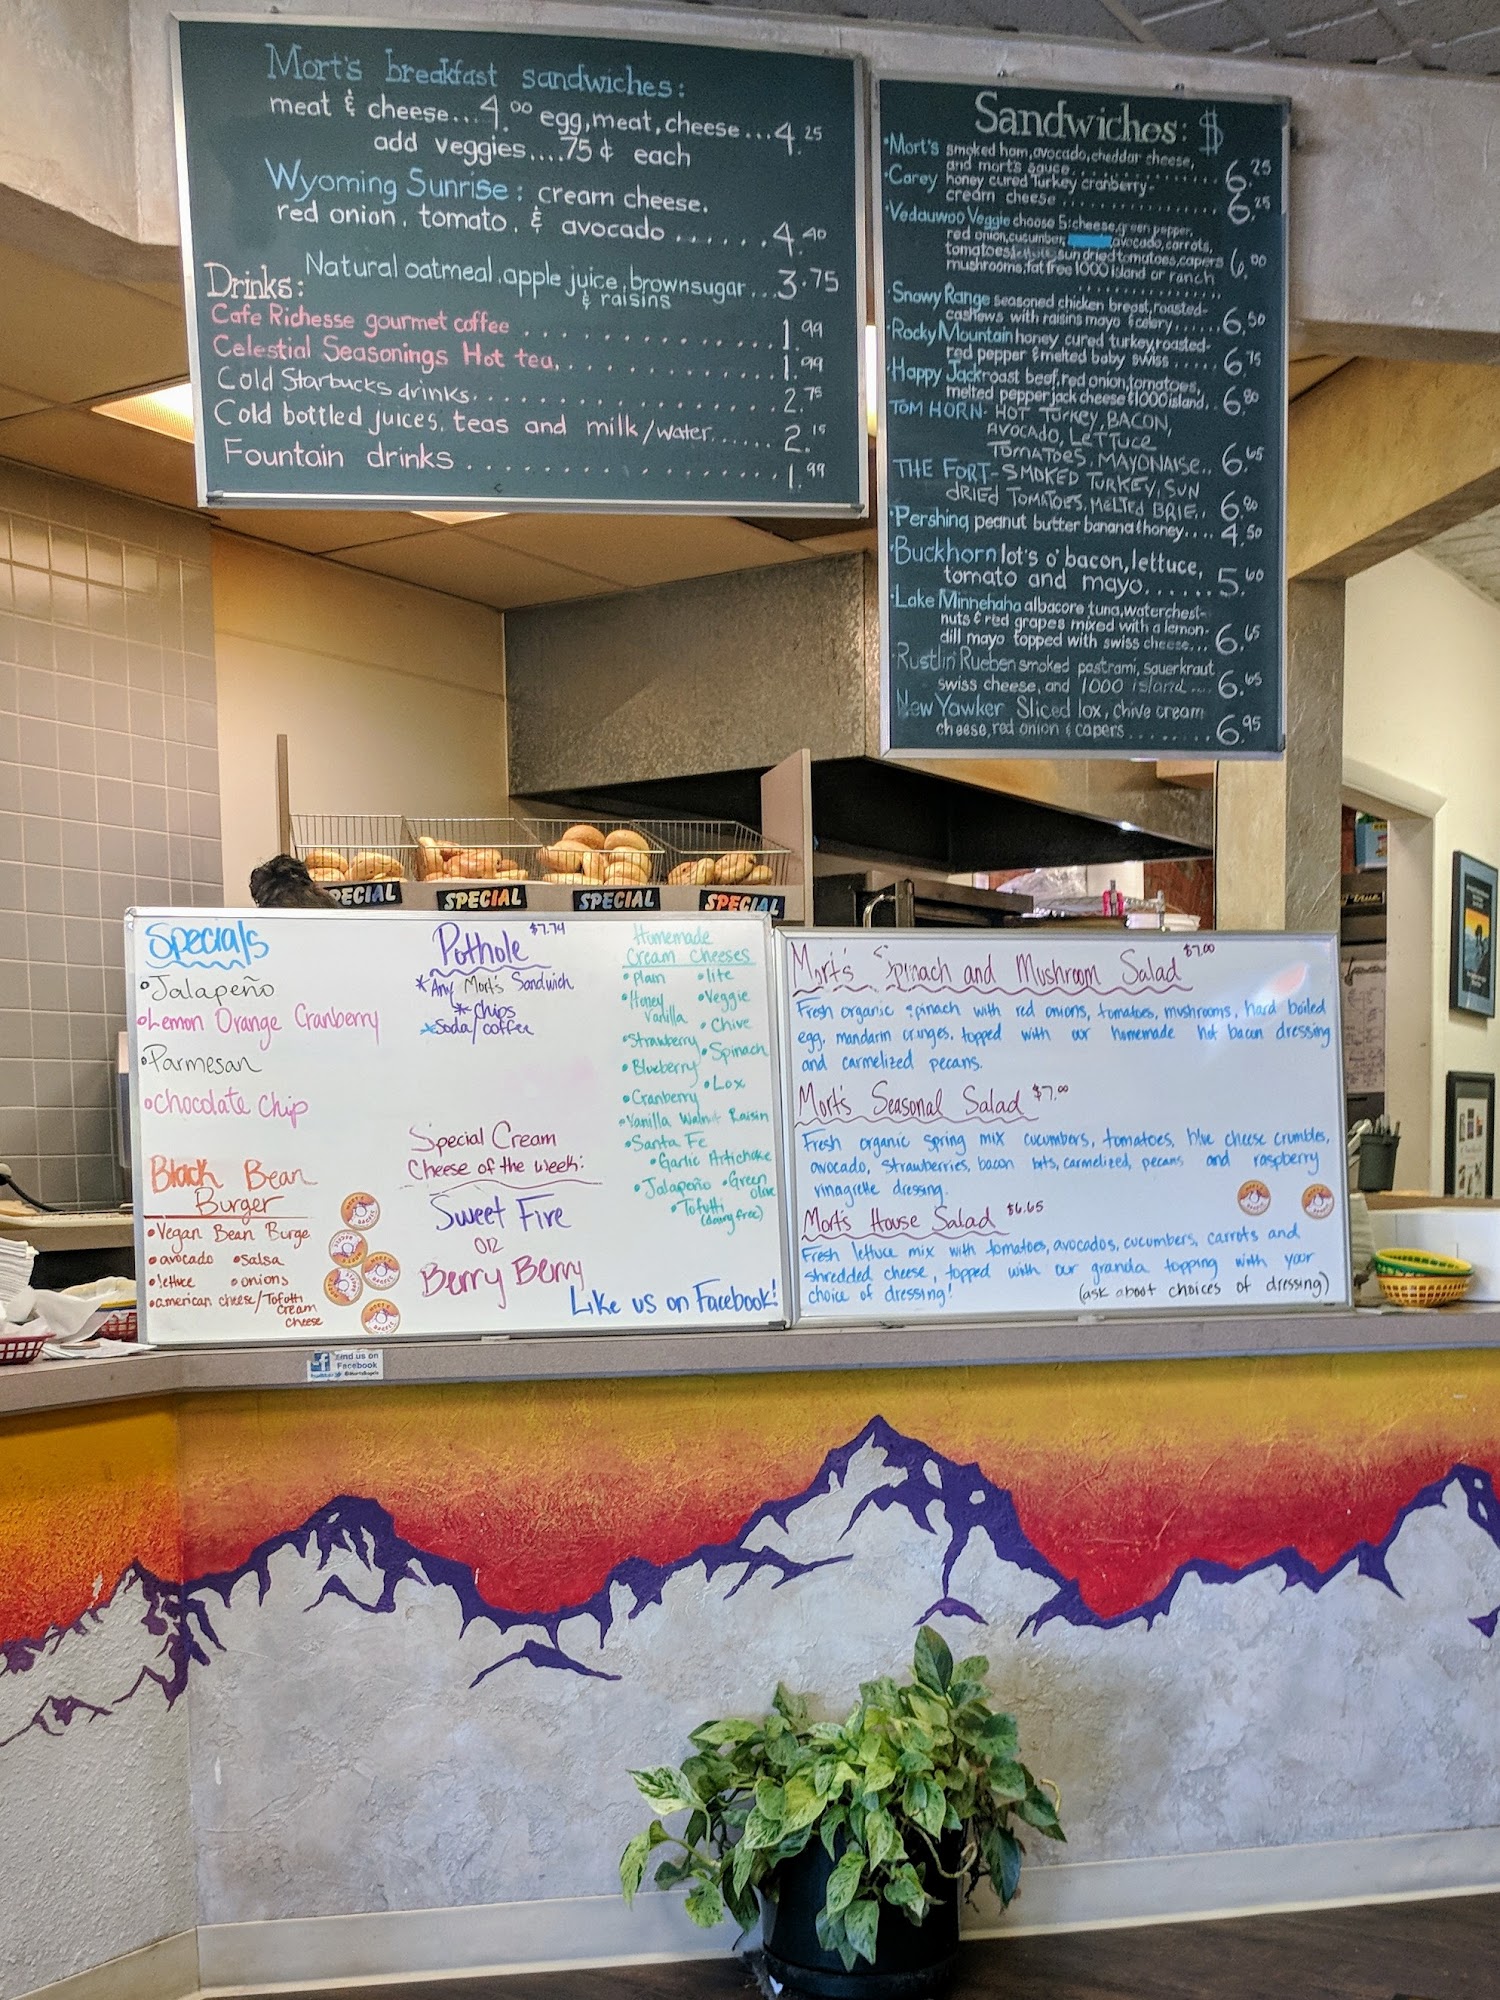 Mort's breakfast sandwiches:
meat & cheese...4.00 egg, meat, cheese...4.25
add veggies....75¢ each
Wyoming Sunrise: cream cheese,
red onion, tomato, & avocado ......4.40
Natural oatmeal, apple juice, brown sugar...3.75
& raisins
Drinks:
Cafe Richesse gourmet coffee ............1.99
Celestial Seasonings Hot tea.............1.99
Cold Starbucks drinks.................2.75
Cold bottled juices, teas and milk/water......2.15
Fountain drinks .................1.99
Sandwiches: $
•Mort's smoked ham, avocado, cheddar cheese,
and mort's sauce............6.25
•Carey honey cured Turkey cranberry-
cream cheese ............6.25
•Vedauwoo Veggie choose 5: cheese, green pepper,
red onion, cucumber, avocado, carrots,
tomatoes, sun dried tomatoes, capers
mushrooms, fat free 1000 island or ranch 6.00
•Snowy Range seasoned chicken breast, roasted-
cashews with raisins mayo & celery......6.50
•Rocky Mountain honey cured turkey, roasted-
red pepper & melted baby swiss .....6.75
•Happy Jack roast beef, red onion, tomatoes,
melted pepper jack cheese & 1000 island..6.80
TOM HORN- HOT TURKEY, BACON,
AVOCADO, LETTUCE
TOMATOES, MAYONAISE..6.65
THE FORT- SMOKED TURKEY, SUN
DRIED TOMATOES, MELTED BRIE..6.80
•Pershing peanut butter banana & honey....4.50
•Buckhorn lot's o' bacon, lettuce,
tomato and mayo......5.60
•Lake Minnehaha albacore tuna, waterchest-
nuts & red grapes mixed with a lemon-
dill mayo topped with swiss cheese...6.65
•Rustlin' Rueben smoked pastrami, sauerkraut
swiss cheese, and 1000 island....6.65
New Yawker Sliced lox, chive cream
cheese, red onion & capers ........6.95
SPECIAL
SPECIAL
SPECIAL
SPECIAL
Specials
•Jalapeño
•Lemon Orange Cranberry
•Parmesan
•Chocolate Chip
Black Bean
Burger
•Vegan Bean Burge
•avocado •salsa
•lettuce •onions
•american cheese/Tofutti
Cream
Cheese
Pothole $7.74
*Any Mort's Sandwich
*chips
*Soda/coffee
Special Cream
Cheese of the week:
Sweet Fire
OR
Berry Berry
Like us on Facebook!
Homemade
Cream Cheeses
•Plain •lite
•Honey •Veggie
Vanilla •Chive
•Strawberry •Spinach
•Blueberry •Lox
•Cranberry
•Vanilla Walnut Raisin
•Santa Fe
•Garlic Artichoke
•Jalapeño •Green
olive
•Tofutti
(dairy free)
Mort's Spinach and Mushroom Salad $7.00
Fresh organic spinach with red onions, tomatoes, mushrooms, hard boiled
egg, mandarin oranges, topped with our homemade hot bacon dressing
and carmelized pecans.
Mort's Seasonal Salad $7.00
Fresh organic spring mix cucumbers, tomatoes, blue cheese crumbles,
avocado, strawberries, bacon bits, carmelized, pecans and raspberry
vinagrette dressing.
Mort's House Salad $6.65
Fresh lettuce mix with tomatoes, avocados, cucumbers, carrots and
shredded cheese, topped with our granola topping with your
choice of dressing! (ask about choices of dressing)
Find us on
Facebook